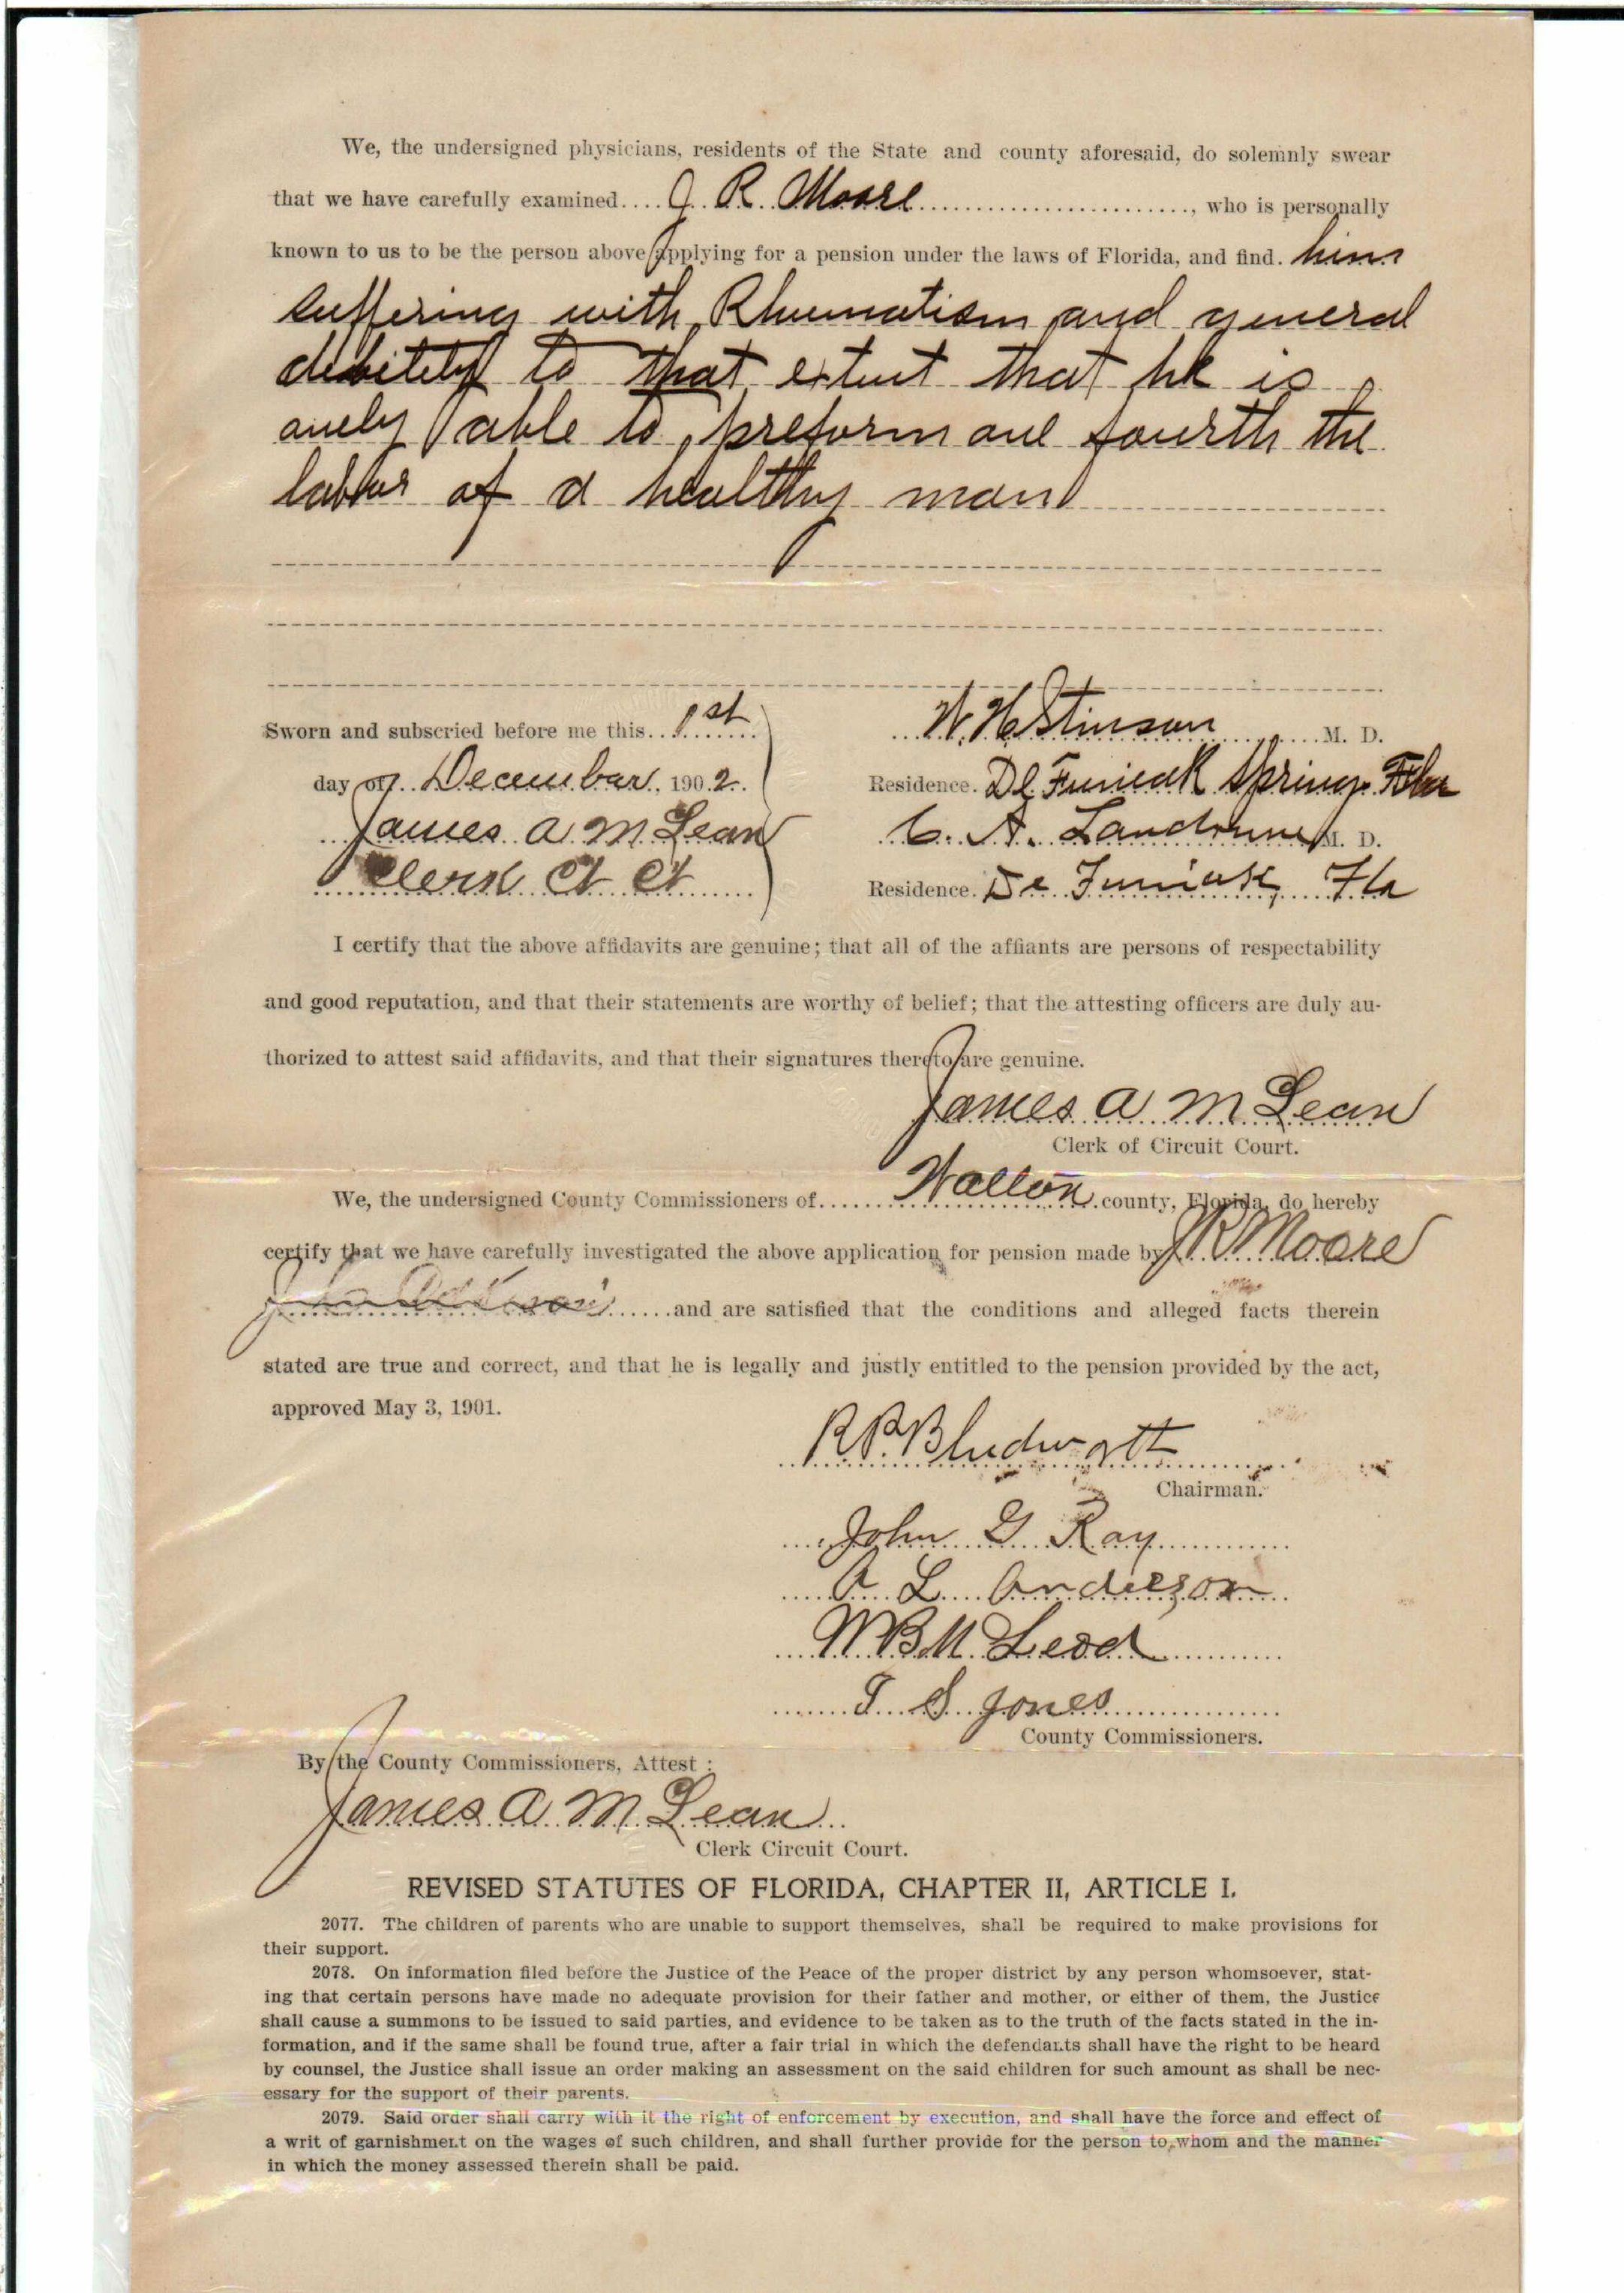 We, the undersigned physicians, residents of the State and county aforesaid, do solemnly swear
that we have carefully examined.... J. R. Moore ...................., who is personally
known to us to be the person above applying for a pension under the laws of Florida, and find. him
suffering with Rhumatism and general
debitety to that extent that he is
onely able to preform one fourth the
labor of a healthy man
Sworn and subscried before me this.. 1st
day of.. December, 190 2.
James A McLean
Clerk Ct Ct
W. H. Stinson ........ M. D.
Residence. De Funiak Springs Fla
C. A. M. D.
Residence. De Funiak, Fla
I certify that the above affidavits are genuine; that all of the affiants are persons of respectability
and good reputation, and that their statements are worthy of belief; that the attesting officers are duly au-
thorized to attest said affidavits, and that their signatures thereto are genuine.
James A McLean
Clerk of Circuit Court.
We, the undersigned County Commissioners of...... Walton county, Florida, do hereby
certify that we have carefully investigated the above application for pension made by J R Moore
......and are satisfied that the conditions and alleged facts therein
stated are true and correct, and that he is legally and justly entitled to the pension provided by the act,
approved May 3, 1901.
R P. Bludworth
Chairman.
John G Ray
A L Anderson
W B McLeod
T S Jones
County Commissioners.
By the County Commissioners, Attest :
James A McLean
Clerk Circuit Court.
REVISED STATUTES OF FLORIDA, CHAPTER II, ARTICLE I.
2077. The children of parents who are unable to support themselves, shall be required to make provisions for
their support.
2078. On information filed before the Justice of the Peace of the proper district by any person whomsoever, stat-
ing that certain persons have made no adequate provision for their father and mother, or either of them, the Justice
shall cause a summons to be issued to said parties, and evidence to be taken as to the truth of the facts stated in the in-
formation, and if the same shall be found true, after a fair trial in which the defendants shall have the right to be heard
by counsel, the Justice shall issue an order making an assessment on the said children for such amount as shall be nec-
essary for the support of their parents.
2079. Said order shall carry with it the right of enforcement by execution, and shall have the force and effect of
a writ of garnishment on the wages of such children, and shall further provide for the person to whom and the manner
in which the money assessed therein shall be paid.